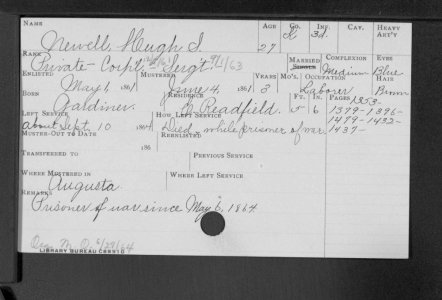 NAME AGE Co. INF. CAV. HEAVY ART'Y
Newell, Hugh I. 27 K 3d.
RANK MARRIED SINGLE COMPLEXION EYES
Private - Corp'l Serg't 9/1/63 Medium Blue
ENLISTED MUSTERED YEARS MO'S. OCCUPATION HAIR
May 1, 1861 June 4, 1861 3 Laborer Brown
BORN RESIDENCE FT. IN. PAGES 1353-
Gardiner. E. Readfield. 5 6 1379-1396-
LEFT SERVICE HOW LEFT SERVICE 1479-1432-
About Sept. 10 1864 Died while prisoner of war 1437-
MUSTER-OUT TO DATE REENLISTED
186
TRANSFERRED TO PREVIOUS SERVICE
WHERE MUSTERED IN WHERE LEFT SERVICE
Augusta.
REMARKS
Prisoner of war since May 6, 1864.
M. O. 6/28/64
LIBRARY BUREAU